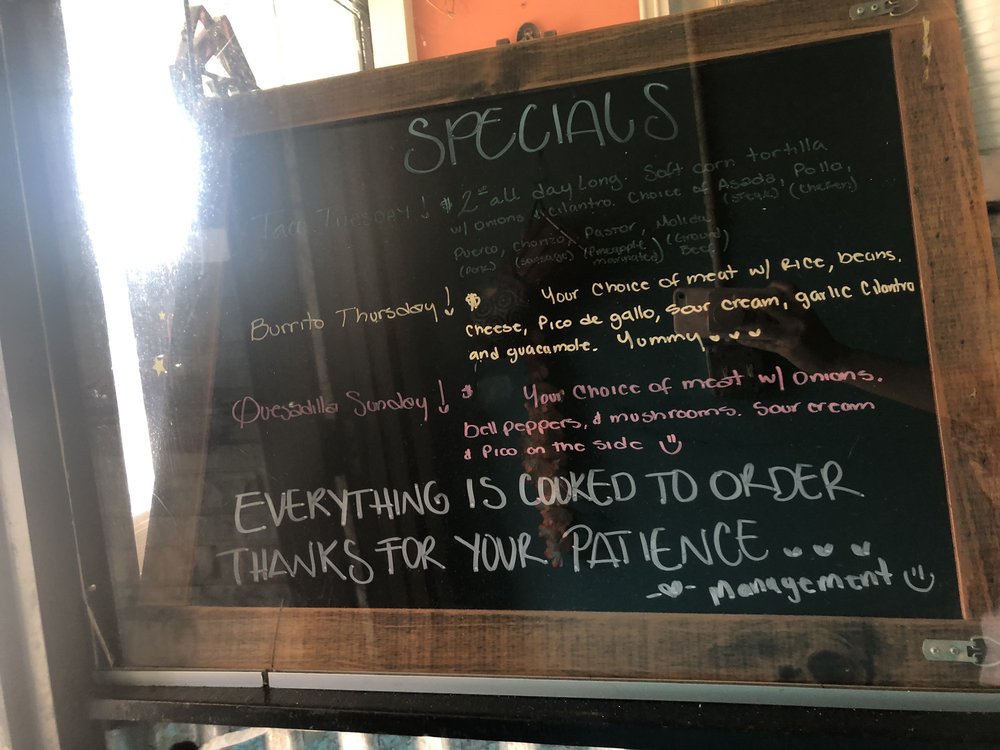 SPECIALS
Taco Tuesday! $2 all day long. Soft corn tortilla
w/ onions & cilantro. Choice of Asada, Pollo,
(steak) (chicken)
Puerco, Chorizo, Pastor, Molida
(Pork) (sausage) (Pineapple marinated) (Ground Beef)
Burrito Thursday! $ Your choice of meat w/ Rice, beans,
cheese, Pico de gallo, sour cream, garlic cilantro
and guacamole. Yummy
Quesadilla Sunday! $ Your choice of meat w/ onions,
bell peppers, & mushrooms. Sour cream
& Pico on the side
EVERYTHING IS COOKED TO ORDER
THANKS FOR YOUR PATIENCE...
- management